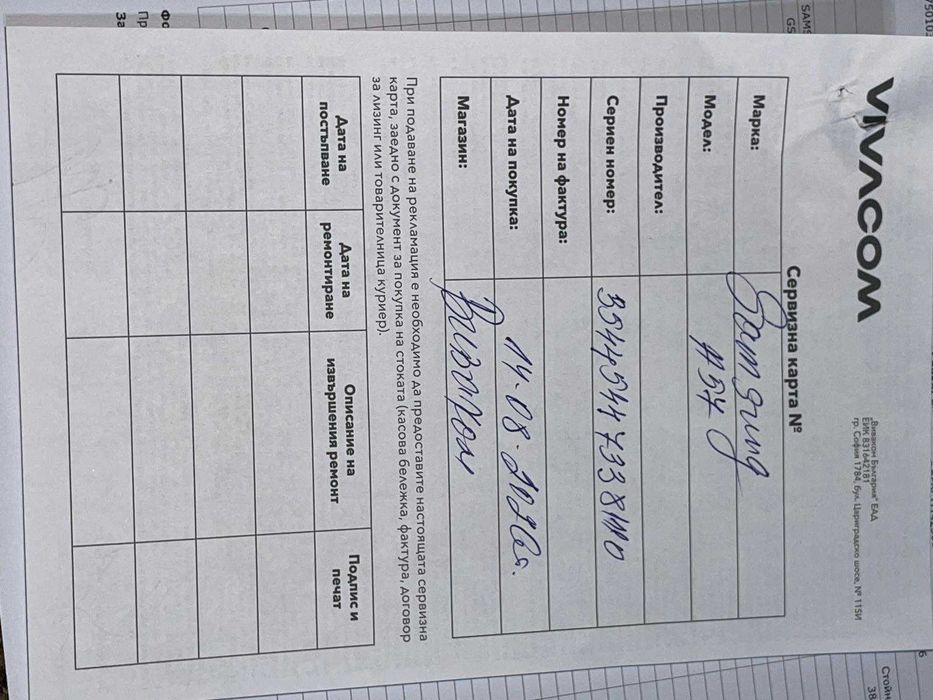 VIVACOM
„Виваком България" ЕАД
ЕИК 831642181
гр. София 1784, бул. Цариградско шосе, № 115И
Сервизна карта №
Марка: Samsung
Модел: A57
Производител:
Сериен номер:
Номер на фактура:
Дата на покупка: 14.08.
Магазин: Виваком
При подаване на рекламация е необходимо да предоставите настоящата сервизна
карта, заедно с документ за покупка на стоката (касова бележка, фактура, договор
за лизинг или товарителница куриер).
Дата на постъпване Дата на ремонтиране Описание на извършения ремонт Подпис и печат